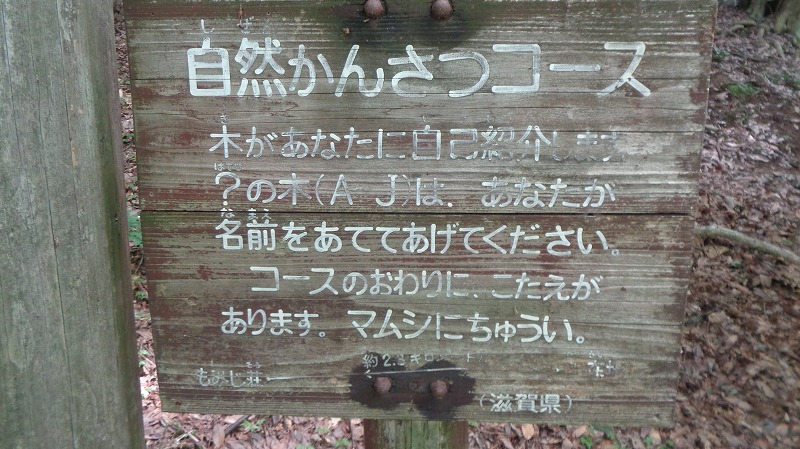 自然かんさつコース
木があなたに自己紹介します
?の木(A J)は、あなたが
名前をあててあげてください。
コースのおわりに、こたえが
あります。マムシにちゅうい。
約2.3キロ
もみじ荘
(滋賀県)